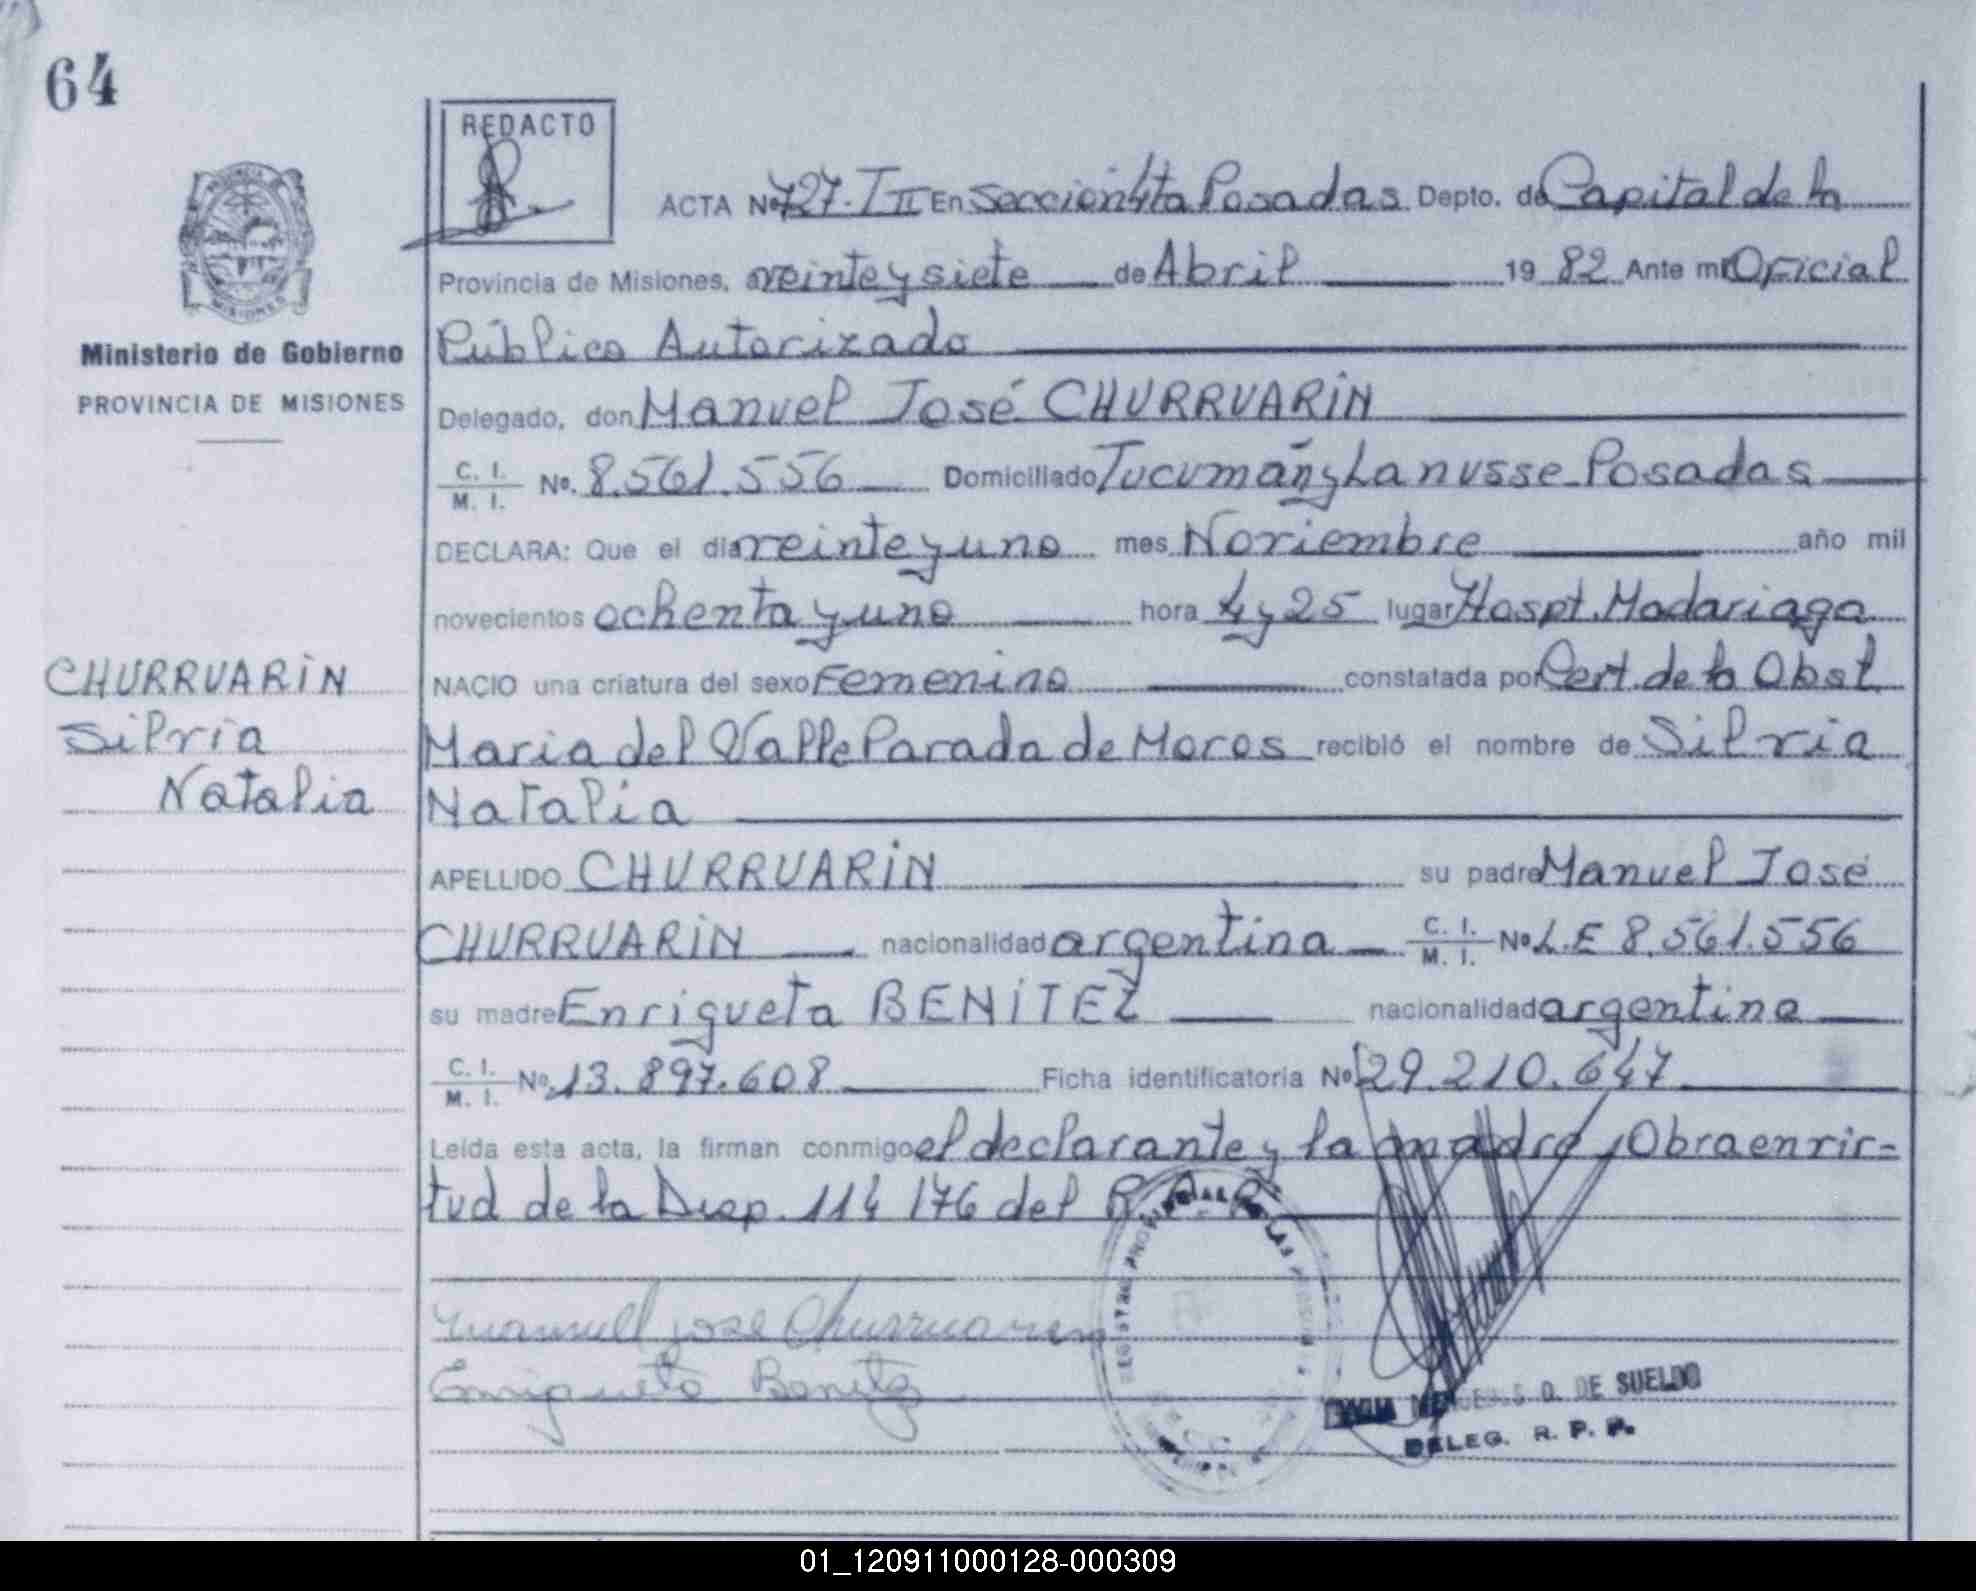 64
REDACTO
ACTA Nº 727. T II En Sección 4ta Posadas Depto. de Capital de la
Provincia de Misiones, a veinte y siete de Abril 19 82 Ante mi Oficial
Ministerio de Gobierno
PROVINCIA DE MISIONES
Público Autorizado
Delegado, don Manuel José CHURRUARIN
C. I. M. I. Nº. 8.561.556 Domiciliado Tucumán y Lanusse Posadas
DECLARA: Que el día veinte y uno mes Noviembre año mil
novecientos ochenta y uno hora 4 y 25 lugar Hospt. Madariaga
CHURRUARIN
Silvia
Natalia
NACIO una criatura del sexo Femenino constatada por Cert. de la Obst
Maria del Valle Parada de Moros recibió el nombre de Silvia
Natalia
APELLIDO CHURRUARIN su padre Manuel José
CHURRUARIN nacionalidad argentina C. I. M. I. Nº L.E 8.561.556
su madre Enriqueta BENITEZ nacionalidad argentina
C. I. M. I. Nº. 13.897.608 Ficha identificatoria Nº 29.210.647
Leída esta acta, la firman conmigo el declarante y la madre, Obra en vir-
tud de la Disp. 114 176 del R.
Manuell jose Churruaren
Enriqueta Benitez
DE SUELDO
DELEG. R. P. P.
01_120911000128-000309